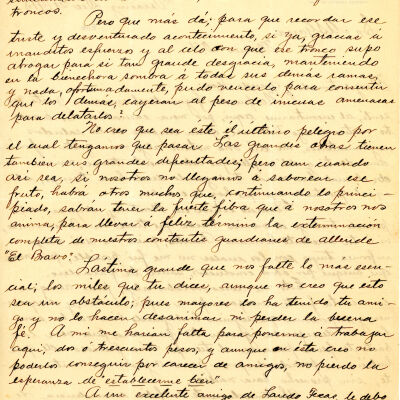 troncos.
Pero que más dá; para que recordar ese
triste y desventurado acontecimiento, si ya, gracias á
inauditos esfuerzos y al celo con que ese tronco supo
abogar para si tan grande desgracia, manteniendo
en la bienechora sombra á todas sus demás ramas,
y nada, afortunadamente, pudo vencerlo para consentir
que los demas, cayeran al peso de inicuas amenazas
para delatarlos?
No creo que sea éste el ultimo peligro por
el cual tengamos que pasar. Las grandes obras tienen
tambien sus grandes dificultades; pero aun cuando
asi sea, si nosotros no llegamos á saborear ese
fruto, habrá otros muchos que, continuando lo princi-
piado, sabrán tener la fuerte fibra que á nosotros nos
anima, para llevar á feliz término la exterminación
completa de nuestros constantes guardianes de allende
"El Bravo."
Lastima grande que nos falte lo más esen-
cial; los miles que tu dices, aunque no creo que esto
sea un obstáculo; pues mayores los ha tenido tu ami-
go y no lo hacen desanimar ni perder la buena
fé. A mi me harian falta para ponerme á trabajar
aqui, dos ó trescientos pesos, y aunque en ésta creo no
poderlos conseguir por carecer de amigos, no pierdo la
esperanza de establecerme bien"
A un excelente amigo de Laredo Texas, le debo